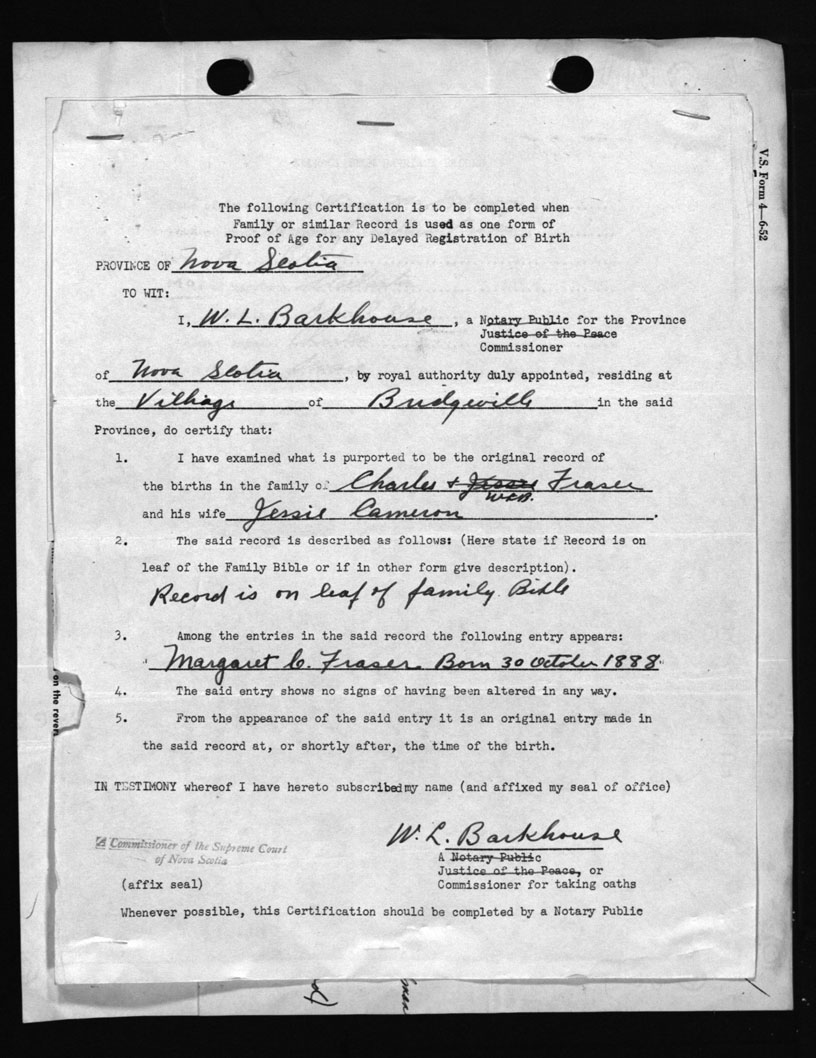 V.S. Form 4—6-52
The following Certification is to be completed when
Family or similar Record is used as one form of
Proof of Age for any Delayed Registration of Birth
PROVINCE OF Nova Scotia
TO WIT:
I, W. L. Barkhouse, a Notary Public for the Province
Justice of the Peace
Commissioner
of Nova Scotia, by royal authority duly appointed, residing at
the Village of Bridgeville in the said
Province, do certify that:
1. I have examined what is purported to be the original record of
the births in the family of Charles & Jessie Fraser
W.L.B.
and his wife Jessie Cameron.
2. The said record is described as follows: (Here state if Record is on
leaf of the Family Bible or if in other form give description).
Record is on leaf of family Bible
3. Among the entries in the said record the following entry appears:
" Margaret C. Fraser Born 30 October 1888 "
4. The said entry shows no signs of having been altered in any way.
5. From the appearance of the said entry it is an original entry made in
the said record at, or shortly after, the time of the birth.
on the revers
IN TESTIMONY whereof I have hereto subscribed my name (and affixed my seal of office)
W. L. Barkhouse
A Commissioner of the Supreme Court
of Nova Scotia
A Notary Public
Justice of the Peace, or
(affix seal) Commissioner for taking oaths
Whenever possible, this Certification should be completed by a Notary Public